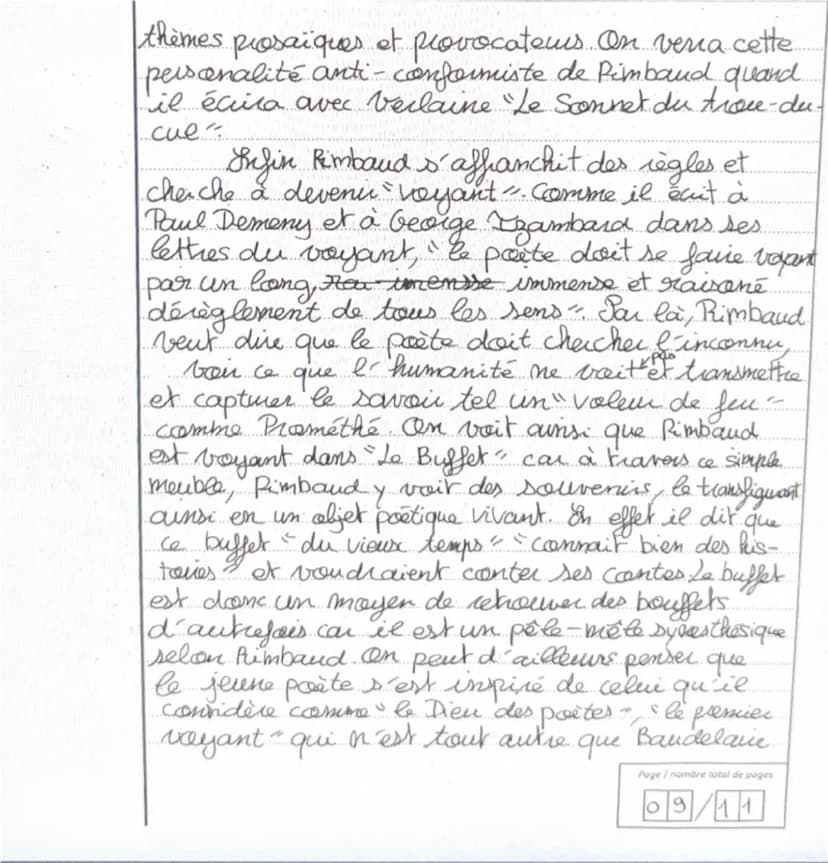 thèmes prosaïques et provocateurs. On verra cette
personalité anti-conformiste de Rimbaud quand
il écrira avec Verlaine "Le Sonnet du trou-du-
cul".
Enfin Rimbaud s'affranchit des règles et
cherche à devenir "voyant". Comme il écrit à
Paul Demeny et à George Izambard dans ses
lettres du voyant, "le poète doit se faire voyant
par un long, immense et raisoné
dérèglement de tous les sens". Par là, Rimbaud
veut dire que le poète doit chercher l'inconnu,
voir ce que l'humanité ne voit pas et transmettre
et capturer le savoir tel un "voleur de feu"
comme Prométhé. On voit ainsi que Rimbaud
est voyant dans "Le Buffet" car à travers ce simple
meuble, Rimbaud y voit des souvenirs, le transfigurant
ainsi en un objet poétique vivant. En effet il dit que
ce buffet "du vieux temps" "connait bien des his-
toires" et voudraient conter ses contes. Le buffet
est donc un moyen de retrouver des bouffets
d'autrefois car il est un pêle-mêle synesthésique
selon Rimbaud. On peut d'ailleurs penser que
le jeune poète s'est inspiré de celui qu'il
considère comme "le Dieu des poètes", "le premier
voyant" qui n'est tout autre que Baudelaire
Page / nombre total de pages
09/11